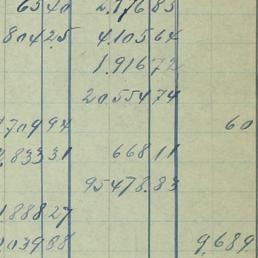 6340 2.77683
80425 4.10564
1.91672
20.55474
70994 60
2,83331 66811
95478.83
18827
203988 9,689